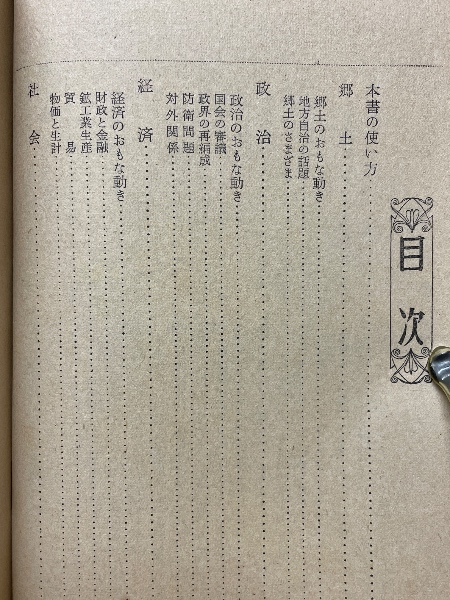 目次
本書の使い方
郷土
郷土のおもな動き
地方自治の話題
郷土のさまざま
政治
政治のおもな動き
国会の審議
政界の再編成
防衛問題
対外関係
経済
経済のおもな動き
財政と金融
鉱工業生産
貿易
物価と生計
社会